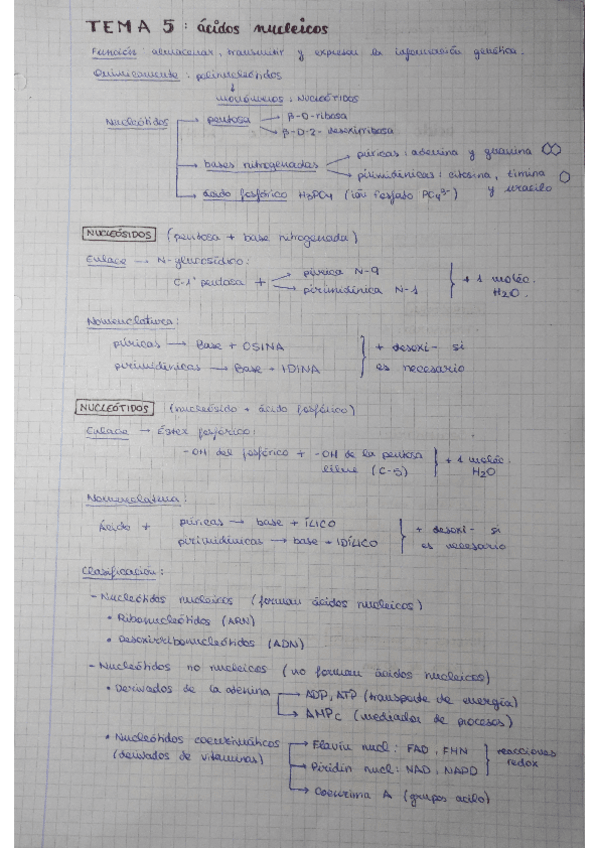 TEMA 5: ácidos nucleicos
Función: almacenar, transmitir y expresar la información genética.
Químicamente: polinucleótidos
monómeros: NUCLEÓTIDOS
Nucleótidos
pentosa
β-D-ribosa
β-D-2-desoxirribosa
bases nitrogenadas
púricas: adenina y guanina
pirimidínicas: citosina, timina
y uracilo
ácido fosfórico H3PO4 (ión fosfato PO4³⁻)
NUCLEÓSIDOS (pentosa + base nitrogenada)
Enlace → N-glucosídico:
C-1' pentosa +
púrica N-9
pirimidínica N-1
+ 1 moléc.
H2O.
Nomenclatura:
púricas → Base + OSINA
pirimidínicas → Base + IDINA
+ desoxi- si
es necesario
NUCLEÓTIDOS (nucleósido + ácido fosfórico)
Enlace → Éster fosfórico:
-OH del fosfórico + -OH de la pentosa
libre (C-5)
+ 1 moléc.
H2O
Nomenclatura:
Ácido +
púricas → base + ÍLICO
pirimidínicas → base + IDÍLICO
+ desoxi- si
es necesario
Clasificación:
- Nucleótidos nucleicos (forman ácidos nucleicos)
• Ribonucleótidos (ARN)
• Desoxirribonucleótidos (ADN)
- Nucleótidos no nucleicos (no forman ácidos nucleicos)
• Derivados de la adenina
ADP, ATP (transporte de energía)
AMPc (mediador de procesos)
• Nucleótidos coenzimáticos
(derivados de vitaminas)
Flavín nucl: FAD, FMN
Piridín nucl: NAD, NADP
reacciones
redox
Coenzima A (grupos acilo)